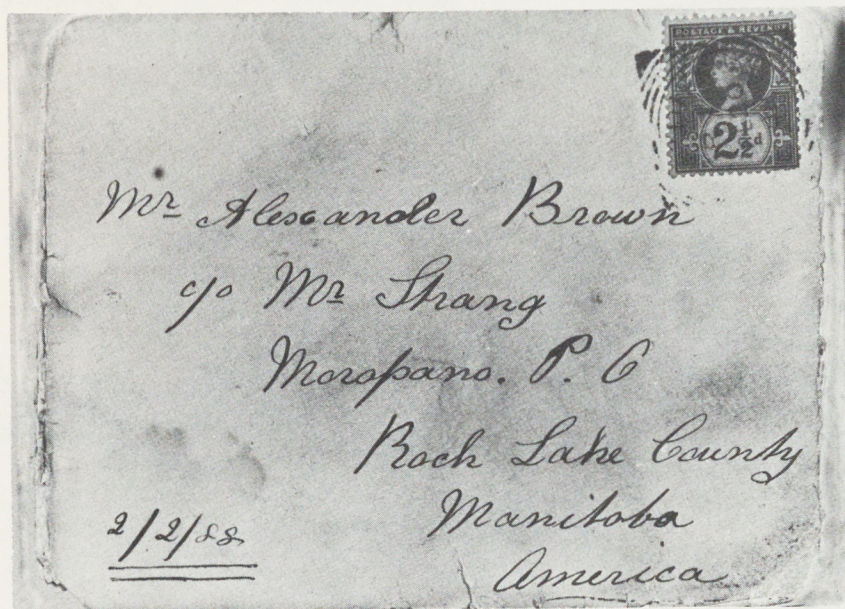 POSTAGE & REVENUE
2½d
Mr Alexander Brown
c/o Mr Strang
Moropano. P. O
Rock Lake County
Manitoba
America
2/2/88